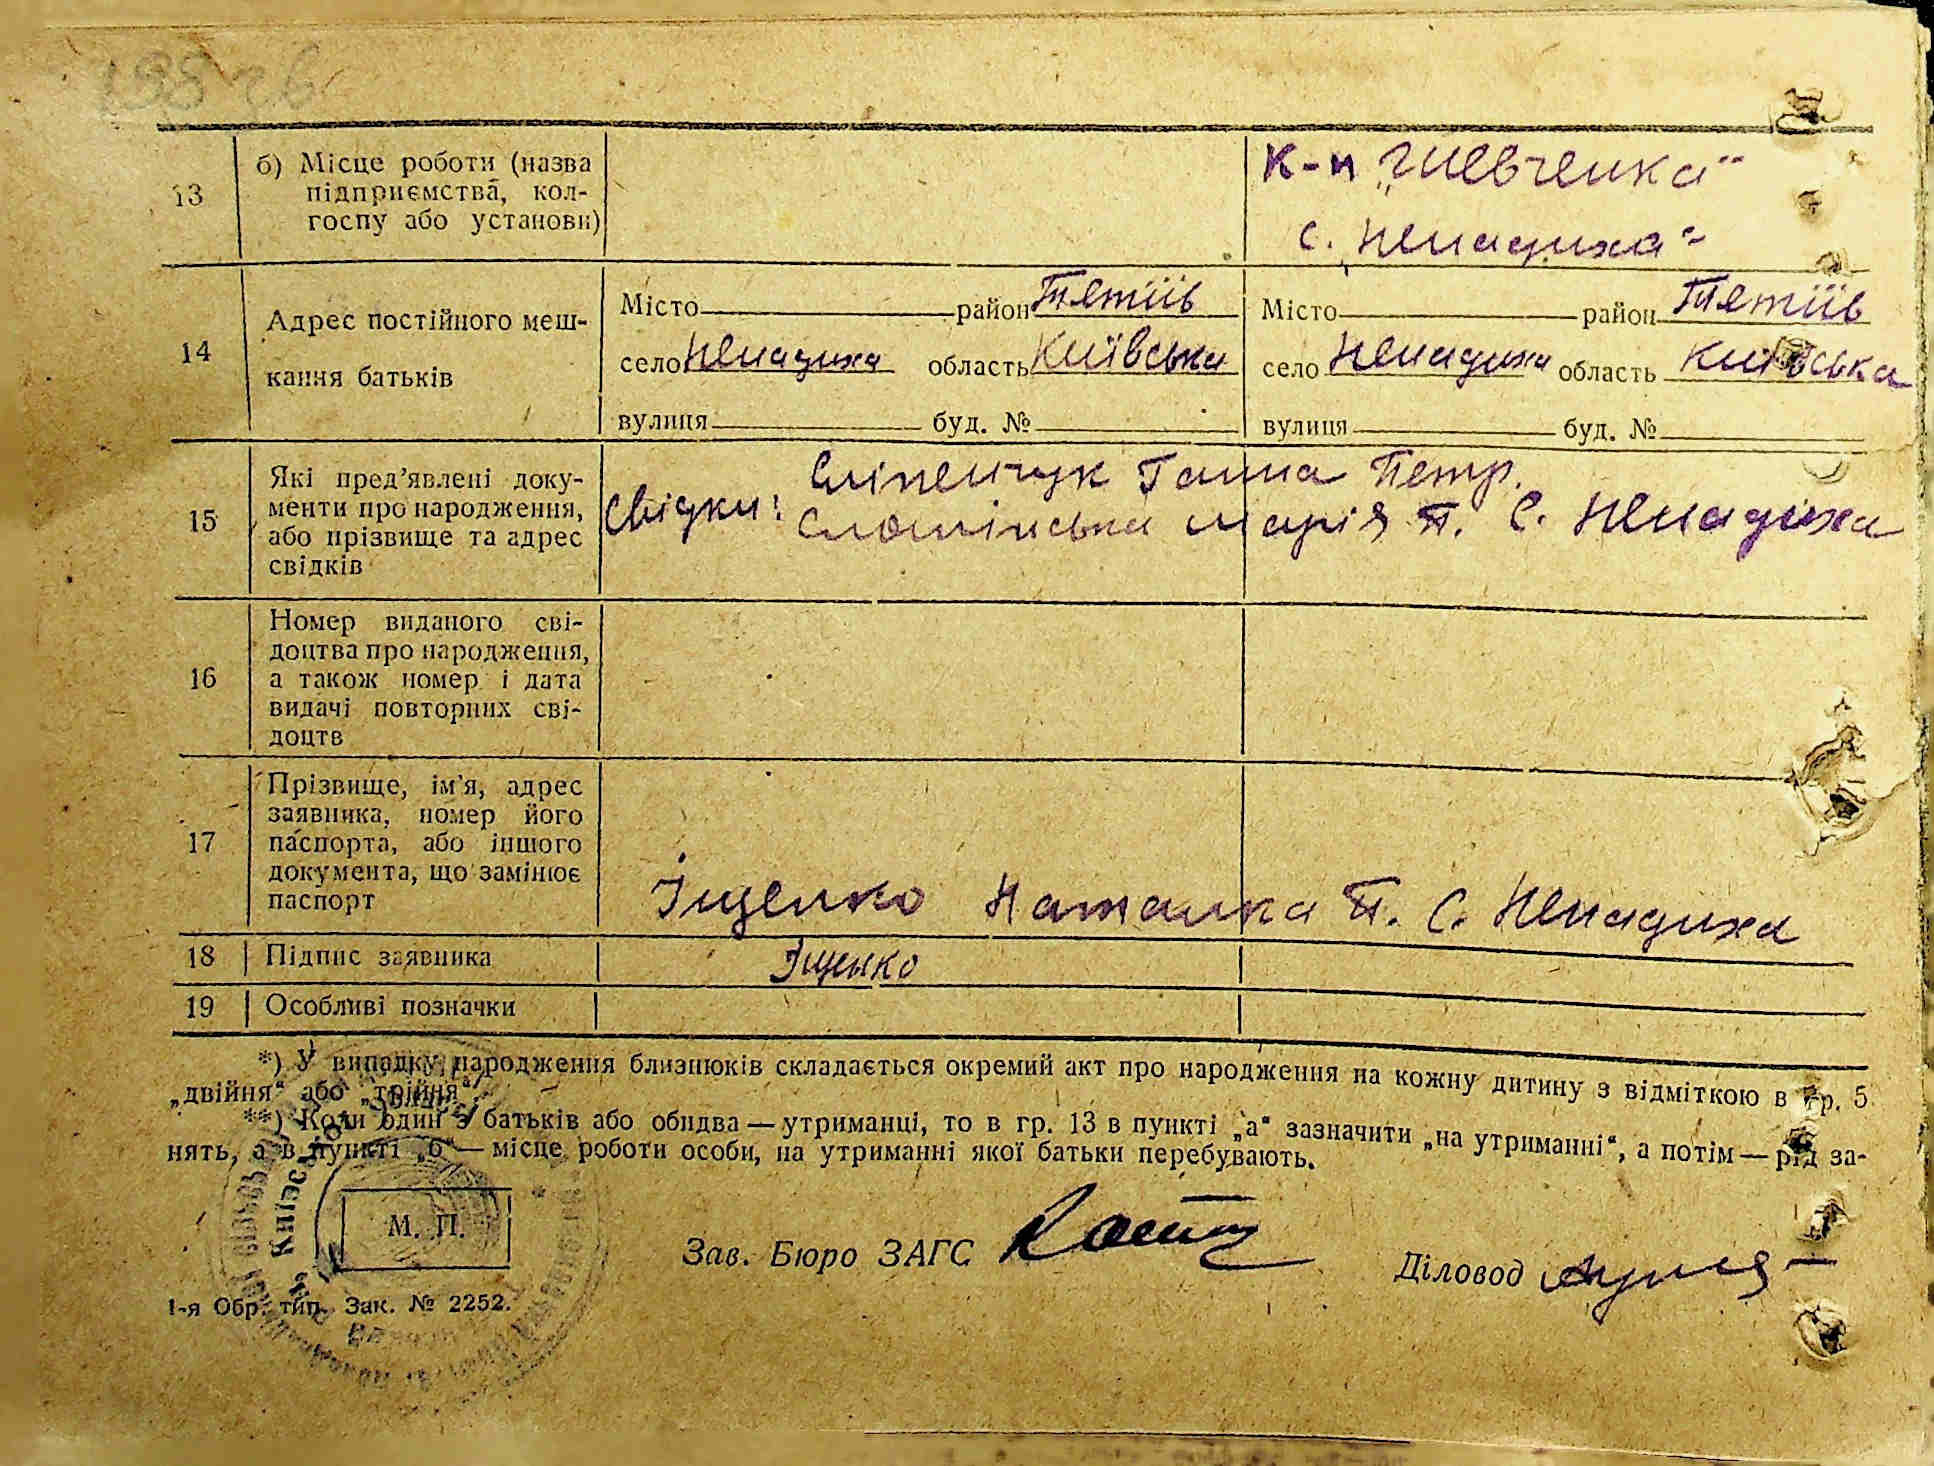 13
б) Місце роботи (назва
підприємства, кол-
госпу або установи)
к-п „Шевченка“
с. „Ненадиха“
14
Адрес постійного меш-
кання батьків
Місто район Тетіїв
село Ненадиха область Київська
вулиця буд. №
Місто район Тетіїв
село Ненадиха область Київська
вулиця буд. №
15
Які пред’явлені доку-
менти про народження,
або прізвище та адрес
свідків
Свідки: Сліпенчук Ганна Петр.
Сломінська Марія П. с. Ненадиха
16
Номер виданого сві-
доцтва про народження,
а також номер і дата
видачі повторних сві-
доцтв
17
Прізвище, ім’я, адрес
заявника, номер його
паспорта, або іншого
документа, що замінює
паспорт
Іщенко Наталка П. с. Ненадиха
18 Підпис заявника Іщенко
19 Особливі позначки
*) У випадку народження близнюків складається окремий акт про народження на кожну дитину з відміткою в гр. 5
„двійня“ або „трійня“.
**) Коли один з батьків або обидва — утриманці, то в гр. 13 в пункті „а“ зазначити „на утриманні“, а потім — рід за-
нять, а в пункті „б“ — місце роботи особи, на утриманні якої батьки перебувають.
М. П.
Зав. Бюро ЗАГС
Діловод
1-я Обр. тип. Зак. № 2252.